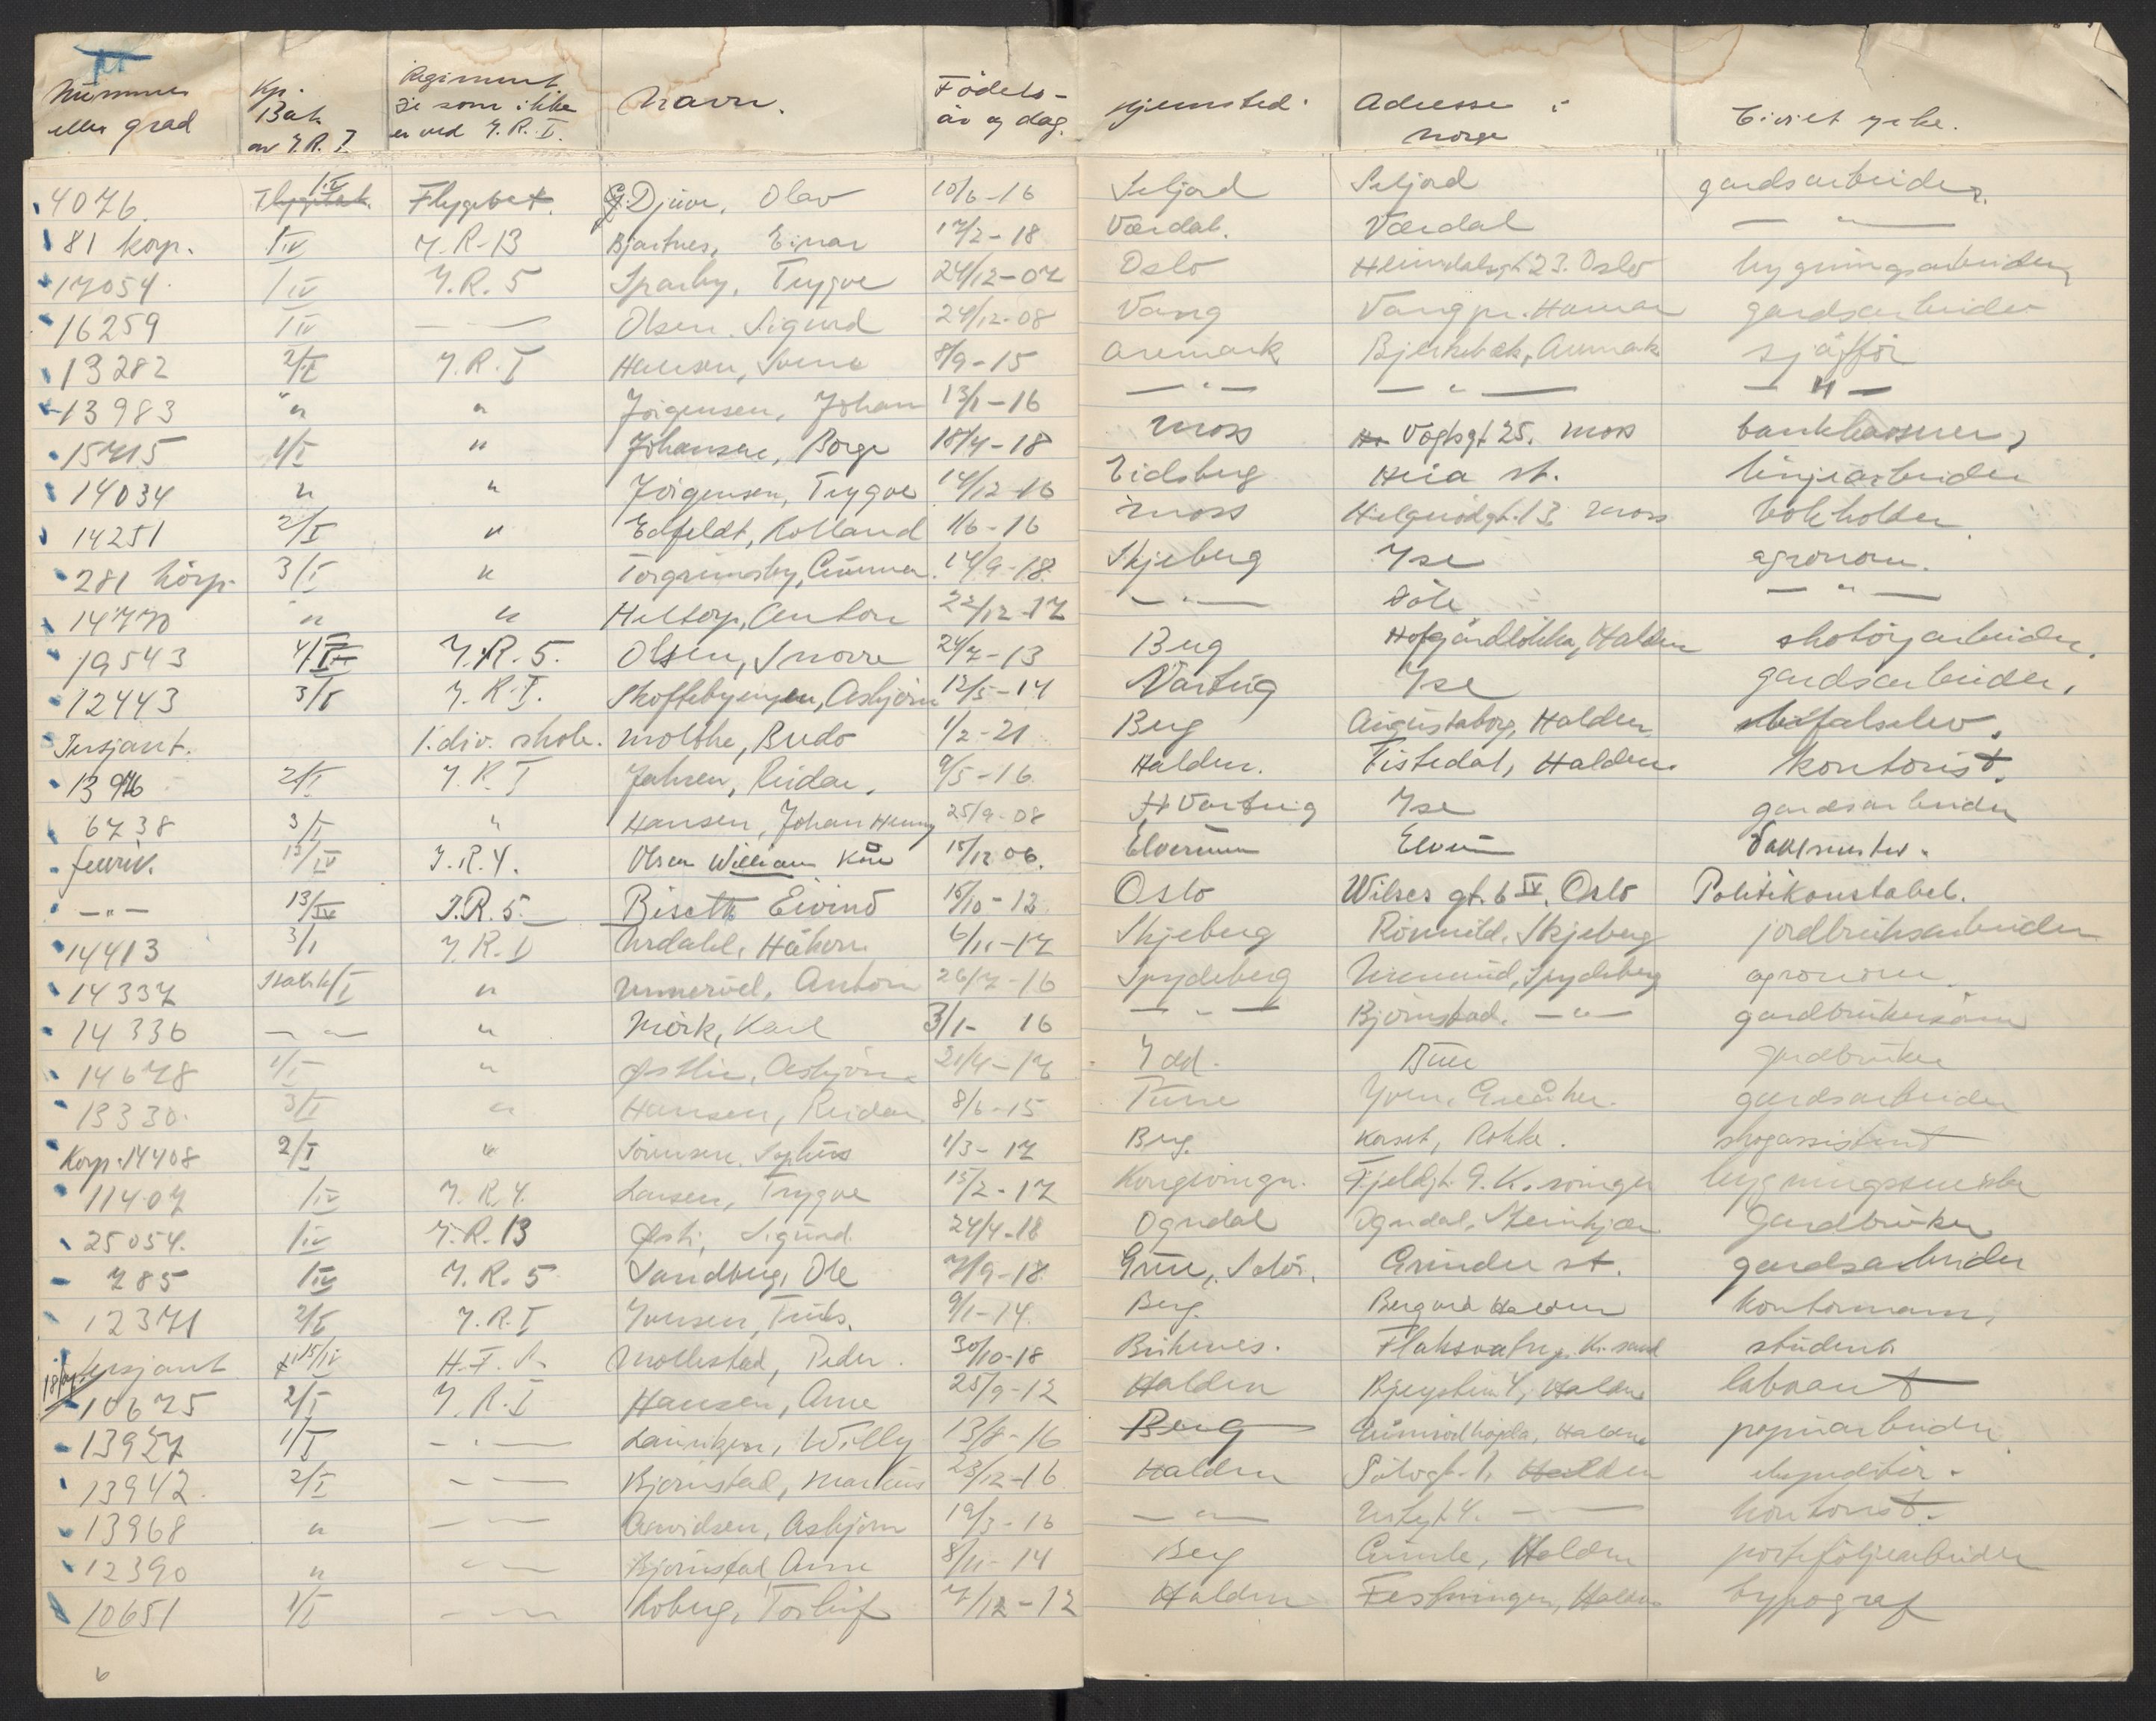 Nummer eller grad | Kp. Bat. av I.R. I | Regiment de som ikke er ved I.R. I. | Navn. | Födels- år og dag. | Hjemsted. | Adresse i Norge | Civilt yrke.
4076. | I.IV | Flygebat. | Djuve, Olav | 10/6-16 | Seljord | Seljord | gardsarbeider.
81 korp. | I IV | I.R-13 | Bjartnes, Einar | 17/2-18 | Værdal. | Værdal | — " —
17054. | I IV | I.R. 5 | Sparby, Trygve | 24/12-07 | Oslo | Heimdalsgt 23. Oslo | bygningsarbeider
16259 | I IV | — | Olsen. Sigurd | 24/12-08 | Vang | Vang pr. Hamar | gardsarbeider
13282 | 2/I | I.R. I | Hansen, Svend | 8/9-15 | Aremark | Bjerkebæk, Aremark | sjåfför
13983 | " | " | Jörgensen, Johan | 13/1-16 | — " — | — " — | — " —
15715 | 1/I | " | Johansen, Borge | 18/4-18 | Moss | Vogtsgt 25. Moss | bankkasserer,
14034 | " | " | Jörgensen, Trygve | 14/12-16 | Eidsberg | Heia st. | linjearbeider
14251 | 2/I | " | Edfeldt, Rolland | 1/6-16 | Moss | Helgerödgt. 13. Moss | bokholder
281 körp. | 3/I | " | Torgrimsby, Gunnar. | 14/9-18. | Skjeberg | Ise | agronom.
14770 | " | " | Heltorp, Anton | 22/12-17 | — " — | Döle | — " —
19543 | 4/I | I.R. 5. | Olsen, Snorre | 24/7-13 | Berg | Hofgårdlökka, Halden | skotöyarbeider.
12443 | 3/I | I.R.I. | Skoffebyengen, Asbjörn | 12/5-14 | Varteig | Ise | gardsarbeider.
Sersjant. | 1. div. skole. | Molthe, Bredo | 1/2-21 | Berg | Augustaborg, Halden. | befalselev.
13976 | 2/I | I.R I | Jahren, Reidar. | 9/5-16. | Halden. | Tistedal, Halden. | kontorist.
6738 | 3/I | " | Hansen, Johan Henry | 25/9-08 | Varteig | Ise | gardsarbeider
fenrik. | 13/IV | I.R.4. | Olsen William Kåre | 15/12 06. | Elverum | Elverum | Vaktmester.
— " — | 13/IV | I.R. 5. | Biseth Eivind | 16/10-12 | Oslo | Wilses gt. 6 IV. Oslo | Politikonstabel.
14413 | 3/I | I.R. I | Urdahl, Håkon | 6/11-17 | Skjeberg | Rönneld, Skjeberg | jordbruksarbeider
14337 | I | " | Unnervel, Anton | 26/7-16 | Spydeberg | Spydeberg | agronom.
14336 | — " — | " | Mörk, Karl | 3/1-16 | — " — | Björnstad. — " — | gardbrukersönn
14678 | 1/I | " | Østlie, Asbjörn | 21/4-17 | Idd. | Buer | gardbruker
13330. | 3/I | " | Hansen, Reidar | 8/6-15 | Tune | Yven, Greåker. | gardsarbeider
Korp. 14408 | 2/I | " | Sörensen. Sophus | 1/3-17 | Berg. | Korset, Rokke. | skogassistent
11407 | I IV | I.R.4. | Larsen, Trygve | 15/2-17 | Kongsvinger. | Fjeldgt. 9. K.svinger | bygningssnekker
25054. | I IV | I.R.13 | Østi, Sigurd. | 24/4-18 | Ogndal | Ogndal, Steinkjær | Gardbruker
785 | I IV | I.R. 5 | Sandberg, Ole | 7/9-18. | Grue, Solör. | Grinder st. | gardsarbeider
12371 | 2/I | I.R.I | Iversen, Truls. | 9/1-14. | Berg. | Berg ved Halden | Kontormann,
Sersjant | 15/IV | H.F.R. | Mollestad, Peder. | 30/10-18 | Birkenes. | Flaksvatn p. Kr.sand | student.
10675 | 2/I | I.R.I | Hansen, Arne | 25/9-12 | Halden | Halden | laborant
13957 | 1/I | — " — | Lauritzen, Willy | 13/8-16 | Berg | Gimrödhögda, Halden | papirarbeider
13942. | 2/I | — | Bjørnstad, Markus | 23/12-16 | Halden | Sölvgt. 1, Halden | ekspeditör.
13968 | " | — | Arvidsen, Asbjørn | 19/3-16 | — " — | 4. — | kontorist.
12390 | " | — | Bjørnstad Arne | 8/11-14 | Berg | Gimle, Halden | porteföljearbeider
10651 | 1/I | — | Roberg, Torleif | 7/12-12 | Halden | Festningen, Halden | typograf
6